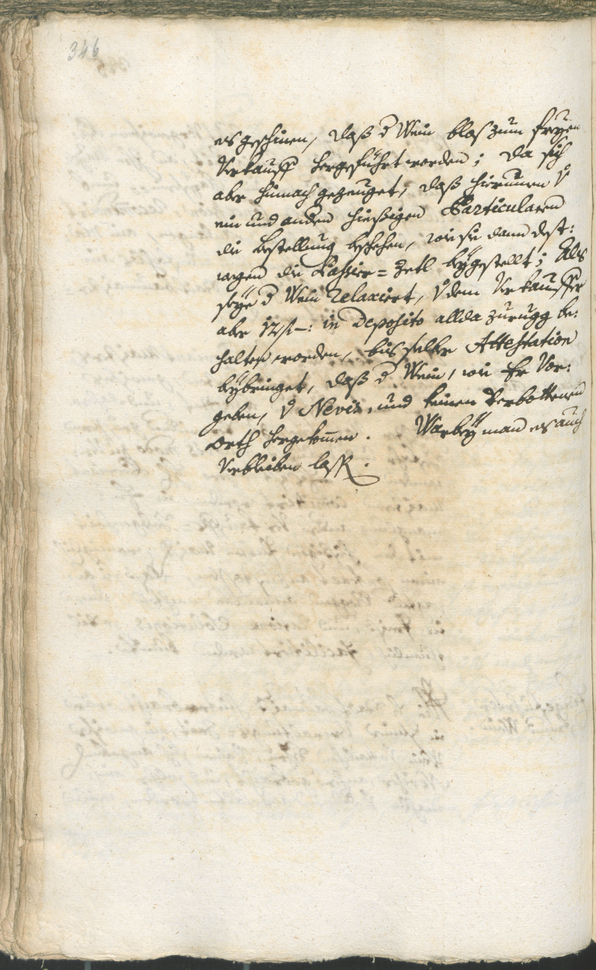 346
es geschinen, daß d Wein blos zum freyen
Verkauff hergeführt worden; da sich
aber hinnach gezeuget, daß hierinnen
ein und andern hießigen Particularen
die bestellung beschehen, wie sie dann dest:
wegen die Passier=Zetl beygestellt; Als
seye d Wein relaxirt, dem Verkauffer
aber 12 in Deposito allda zurugg be:
halten worden, bis selber Attestation
beybringet, daß d Wein, wie Er Vor:
geben, Nevis, und keinen Verbottenen
Orth hergekomen. Warbey man es auch
Verbleiben lasst.